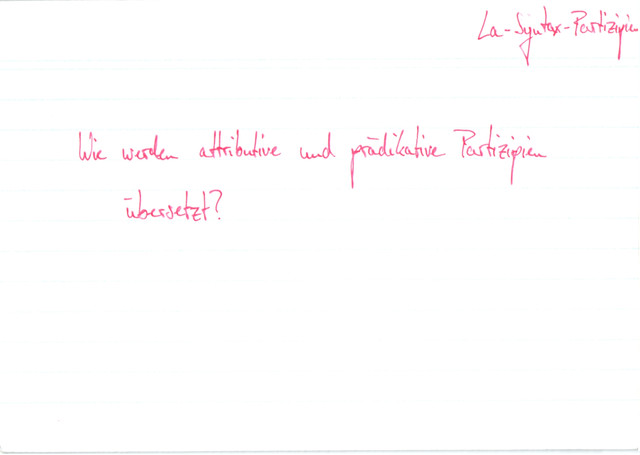 La-Syntax-Partizipien
Wie werden attributive und prädikative Partizipien
übersetzt?